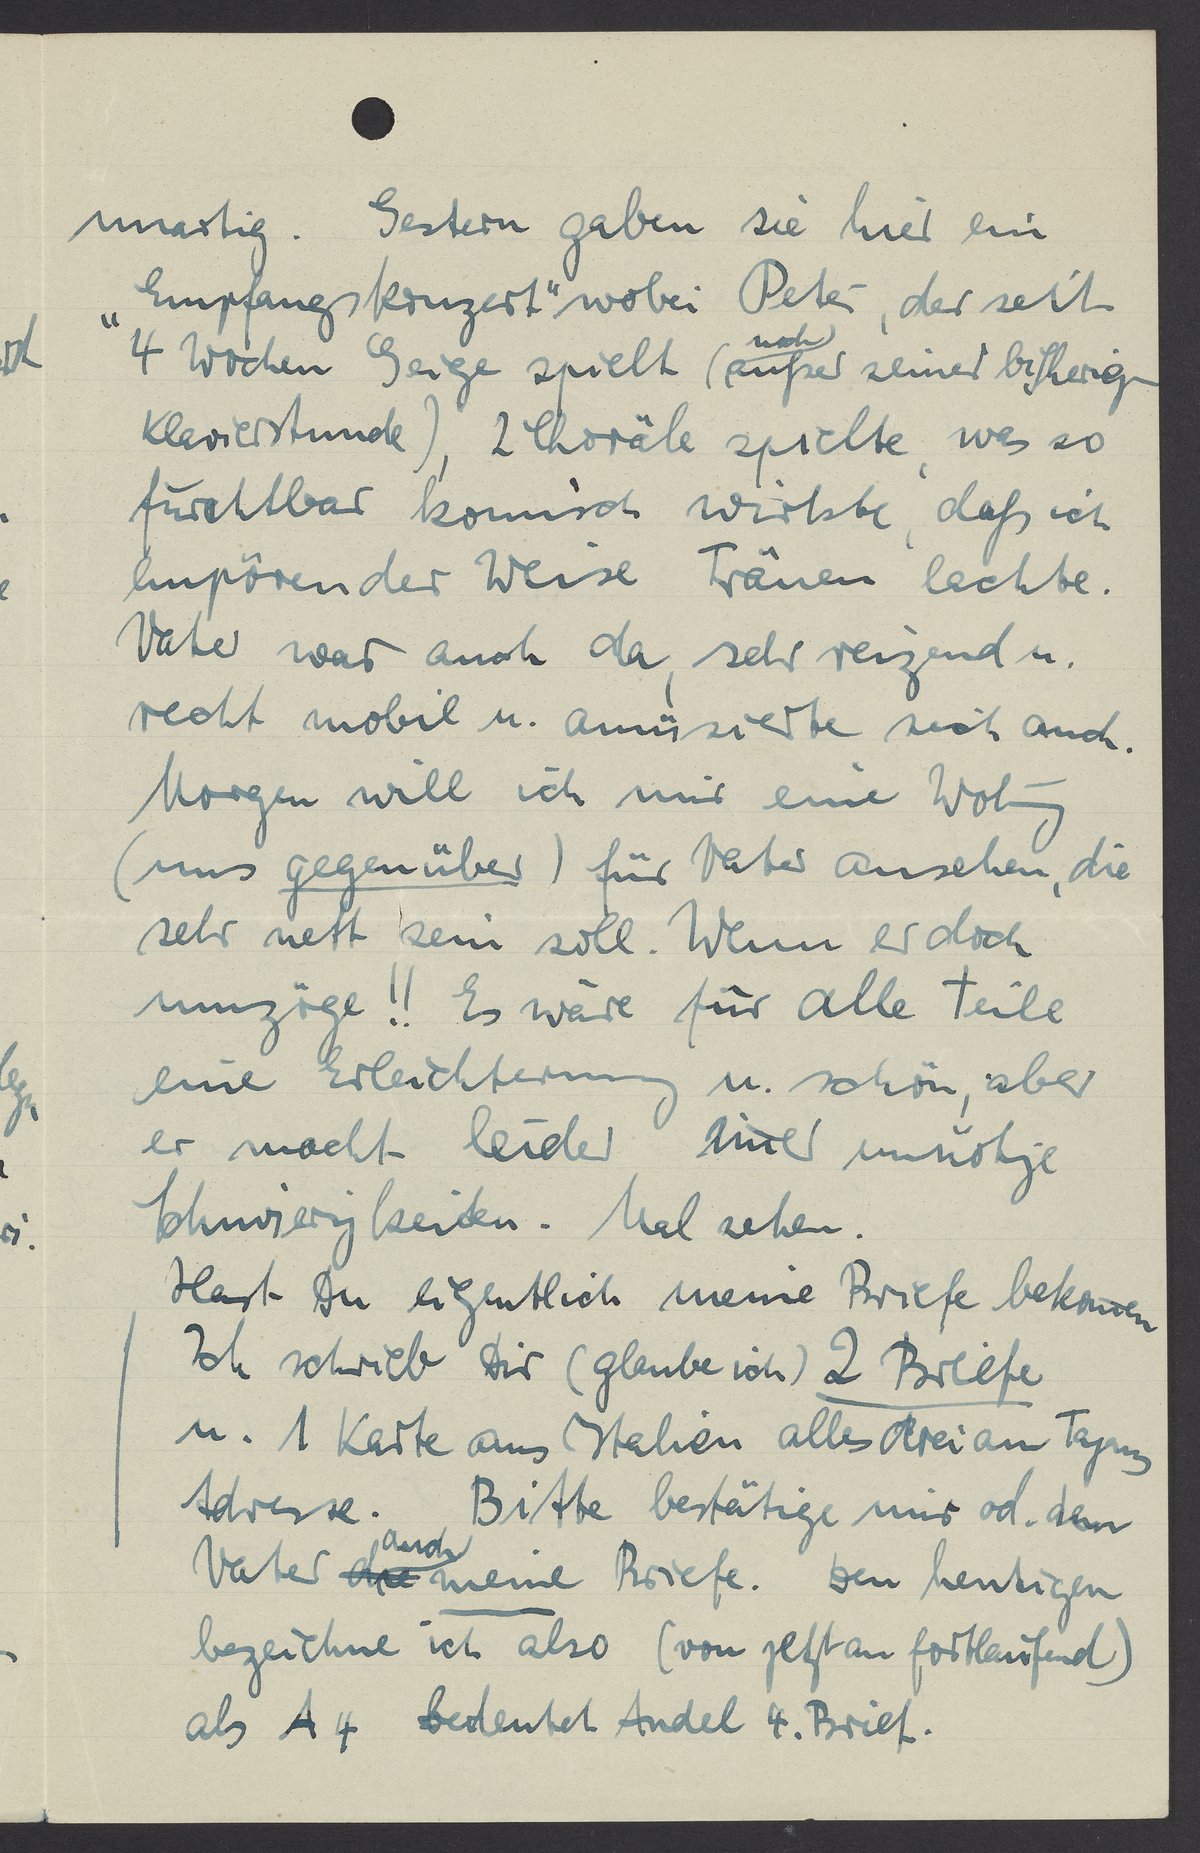 unartig. Gestern gaben sie hier ein
„Empfangskonzert“ wobei Peter, der seit
4 Wochen Geige spielt (noch außer seiner bisherig
Klavierstunde), 2 Choräle spielte, was so
furchtbar komisch wirkte, daß ich
empörender Weise Tränen lachte.
Vater war auch da, sehr reizend u.
recht mobil u. amüsierte sich auch.
Morgen will ich mir eine Wohng
(uns gegenüber) für Vater ansehen, die
sehr nett sein soll. Wenn er doch
umzöge!! Es wäre für alle Teile
eine Erleichterung u. schön, aber
er macht leider imer unnötige
Schwierigkeiten. Mal sehen.
Hast Du eigentlich meine Briefe bekomen
Ich schrieb Dir (glaube ich) 2 Briefe
u. 1 Karte aus Italien alles drei an Tagungs
Adresse. Bitte bestätige mir od. dem
Vater die auch meine Briefe. Den heutigen
bezeichne ich also (von jetzt an fortlaufend)
als A 4 bedeutet Andel 4. Brief.